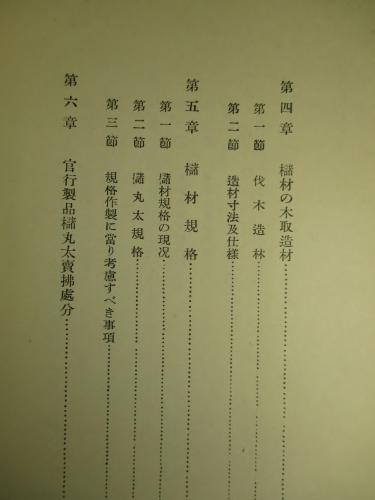 第四章 櫧材の木取造材
第一節 伐木造林
第二節 造材寸法及仕様
第五章 櫧材規格
第一節 櫧材規格の現況
第二節 櫧丸太規格
第三節 規格作製に當り考慮すべき事項
第六章 官行製品櫧丸太賣拂處分